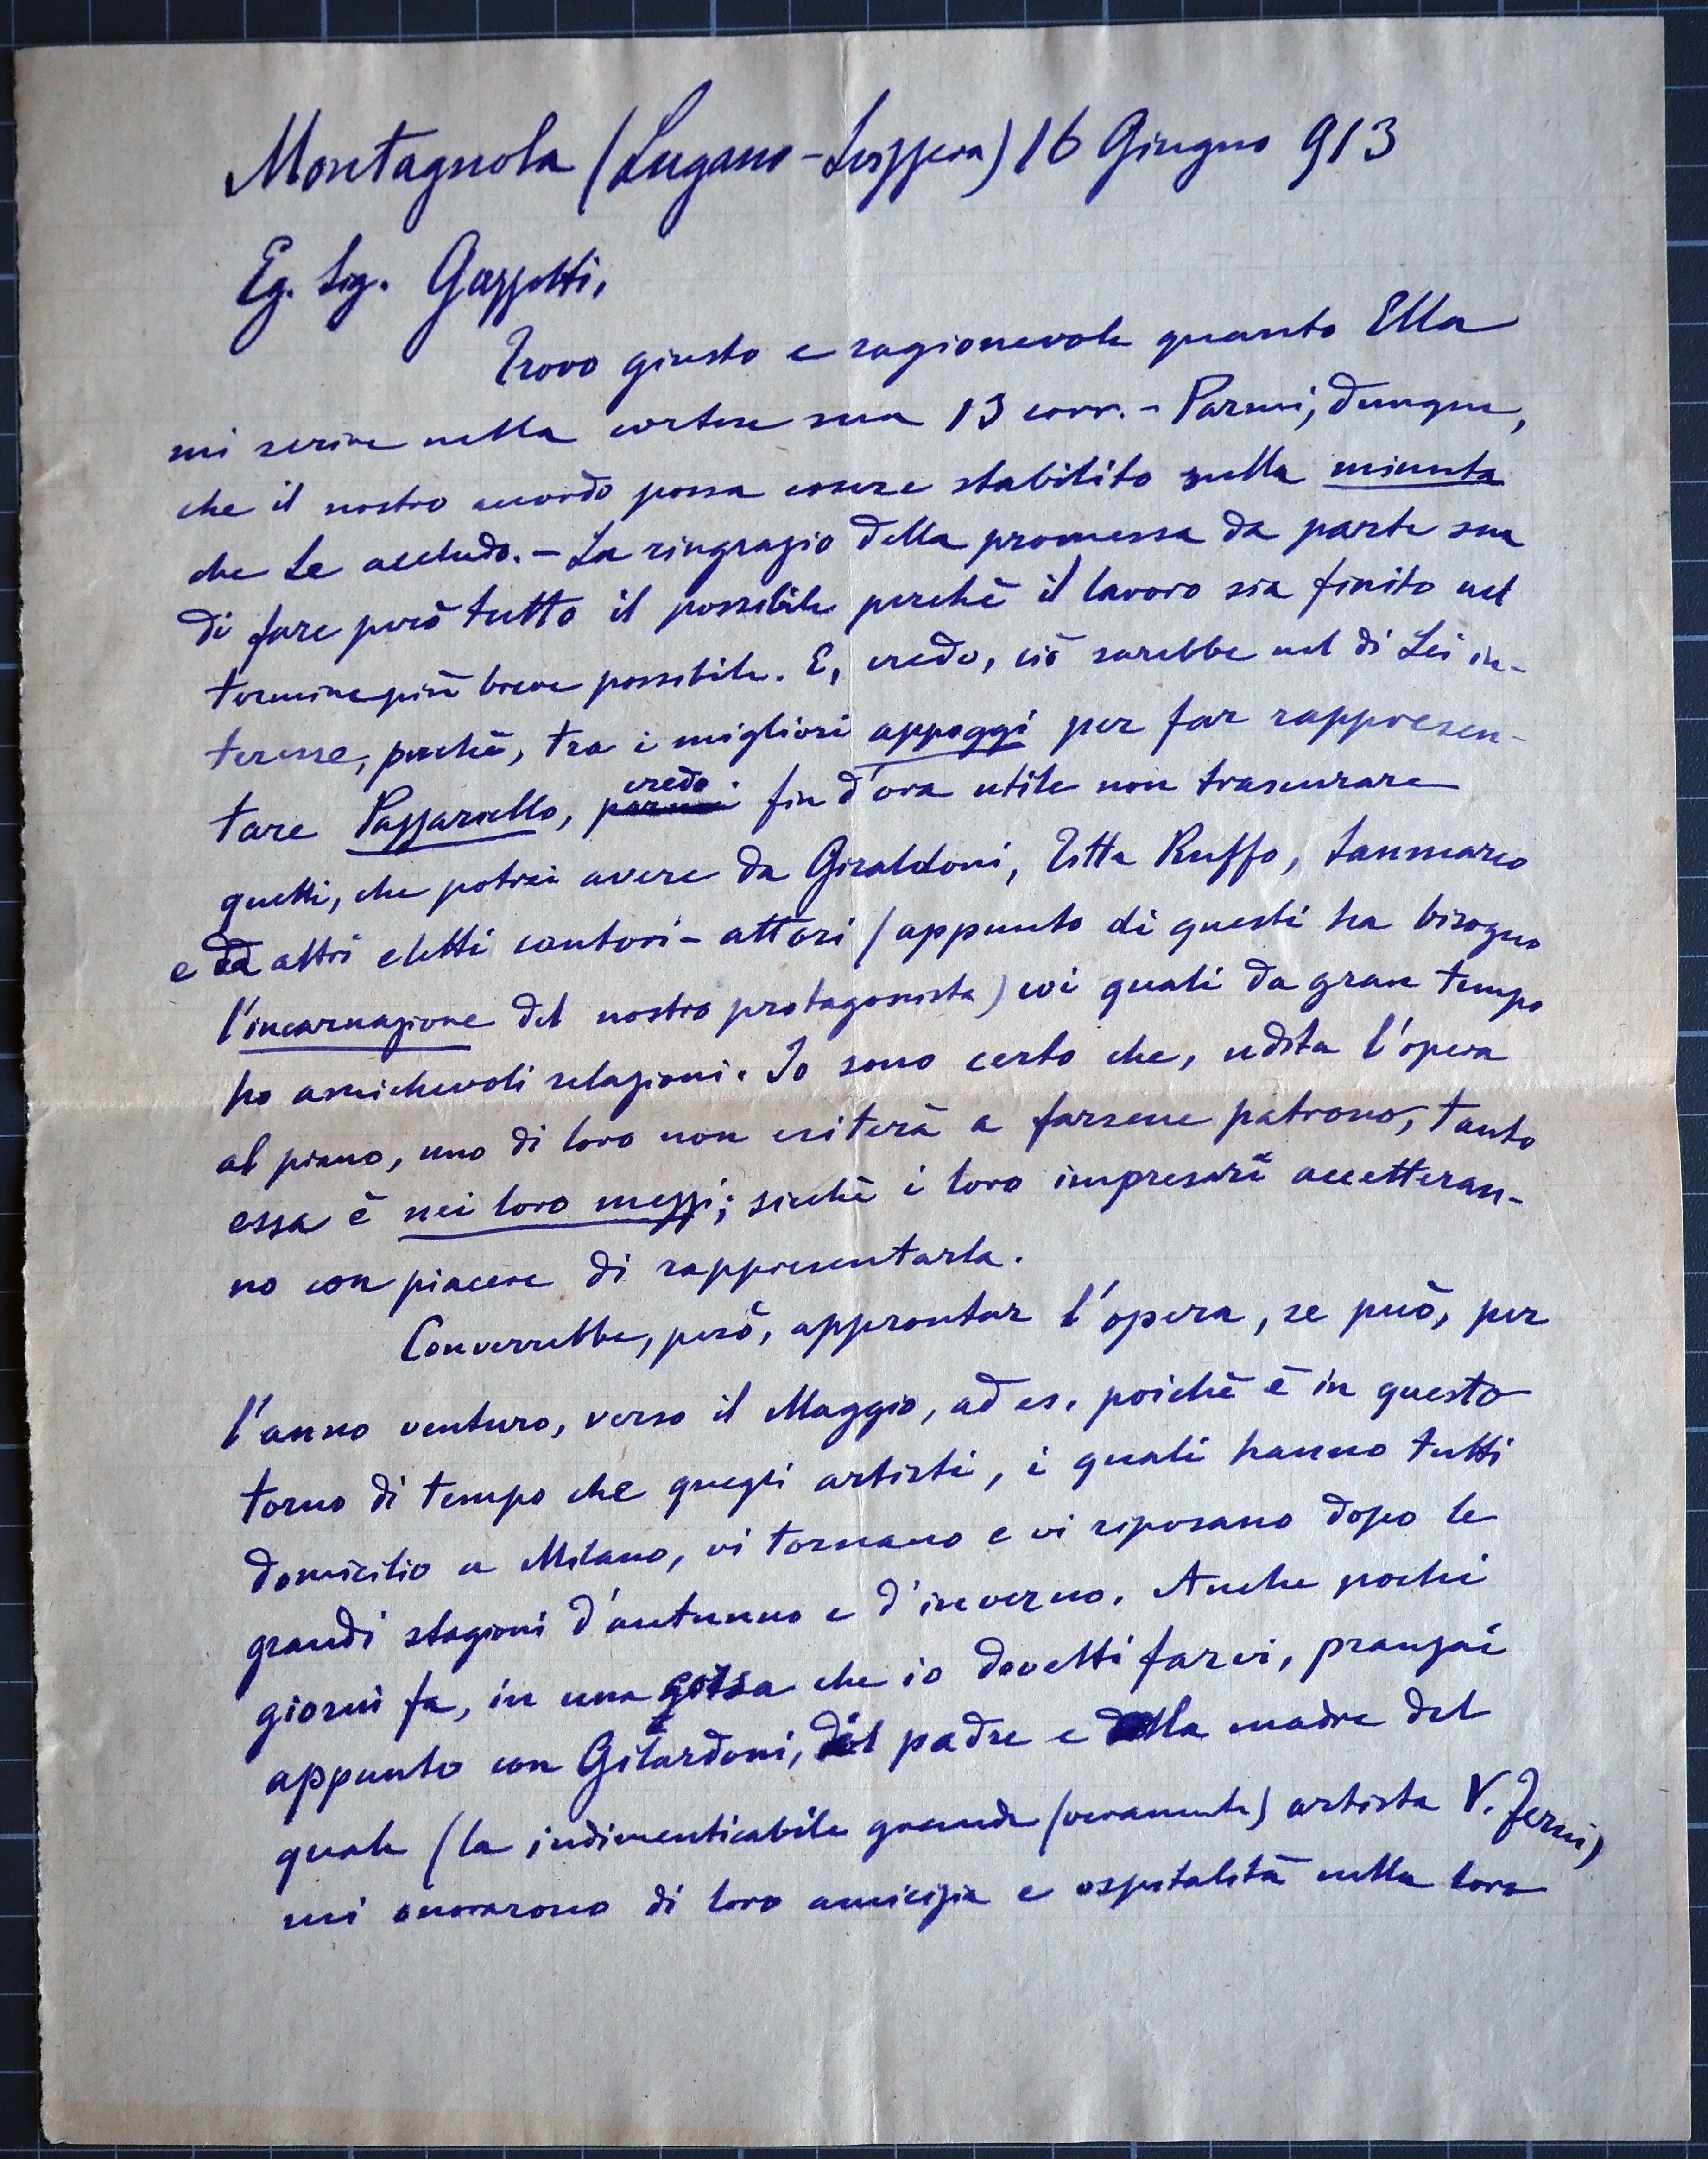 Montagnola (Lugano-Svizzera) 16 Giugno 913
Eg. Sig. Gazzotti,
Trovo giusto e ragionevole quanto Ella
mi scrive nella cortese sua 13 corr. - Parmi, dunque,
che il nostro accordo possa essere stabilito sulla minuta
che Le accludo. - La ringrazio della promessa da parte sua
di fare però tutto il possibile perchè il lavoro sia finito nel
termine più breve possibile. E, credo, ciò sarebbe nel di Lei in-
teresse, perchè, tra i migliori appoggi per far rappresen-
tare Pazzariello, parmi credo fin d'ora utile non trascurare
quelli, che potrei avere da Giraldoni, Titta Ruffo, Sanmarco
e da altri eletti cantori-attori (appunto di questi ha bisogno
l'incarnazione del nostro protagonista) coi quali da gran tempo
ho amichevoli relazioni. Io sono certo che, udita l'opera
al piano, uno di loro non esiterà a farsene patrono, tanto
essa è nei loro mezzi; sicchè i loro impresari accetteran-
no con piacere di rappresentarla.
Converrebbe, però, approntar l'opera, se può, per
l'anno venturo, verso il Maggio, ad es. poichè è in questo
torno di tempo che quegli artisti, i quali hanno tutti
domicilio a Milano, vi tornano e vi riposano dopo le
grandi stagioni d'autunno e d'inverno. Anche pochi
giorni fa, in una corsa che io dovetti farvi, pranzai
appunto con Gilardoni, il padre e la madre del
quale (la indimenticabile grande (veramente) artista V. Ferni)
mi onorarono di loro amicizia e ospitalità nella loro